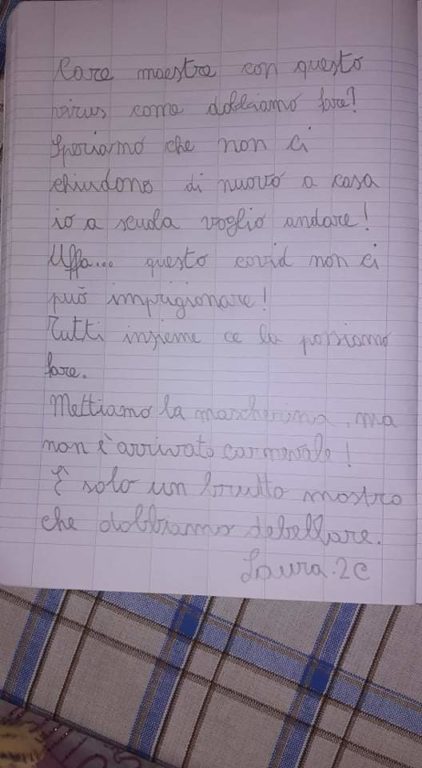 Care maestre con questo
virus come dobbiamo fare?
Speriamo che non ci
chiudono di nuovo a casa
io a scuola voglio andare!
Uffa... questo covid non ci
può imprigionare!
Tutti insieme ce la possiamo
fare.
Mettiamo la mascherina, ma
non è arrivato carnevale!
È solo un brutto mostro
che dobbiamo debellare.
Laura. 2C